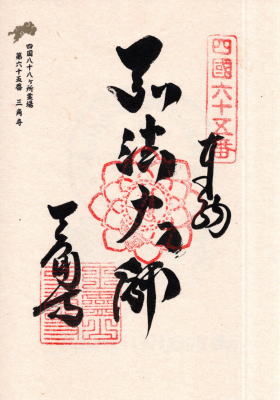 四國六十五番
奉納
弘法大師
三角寺
四国八十八ヶ所霊場
第六十五番 三角寺